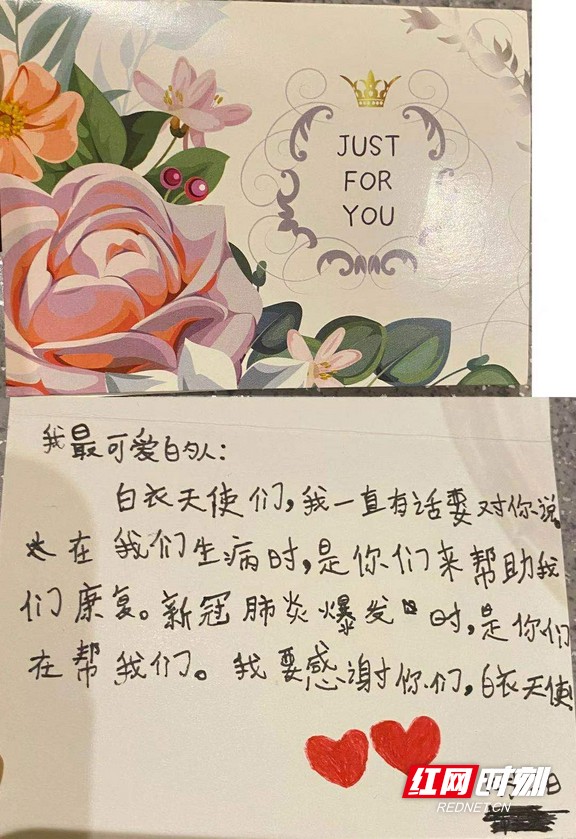 JUST
FOR
YOU
我最可爱的人：
白衣天使们，我一直有话要对你说。
在我们生病时，是你们来帮助我
们康复。新冠肺炎爆发时，是你们
在帮我们。我要感谢你们，白衣天使
红网时刻
REDNET.CN
日